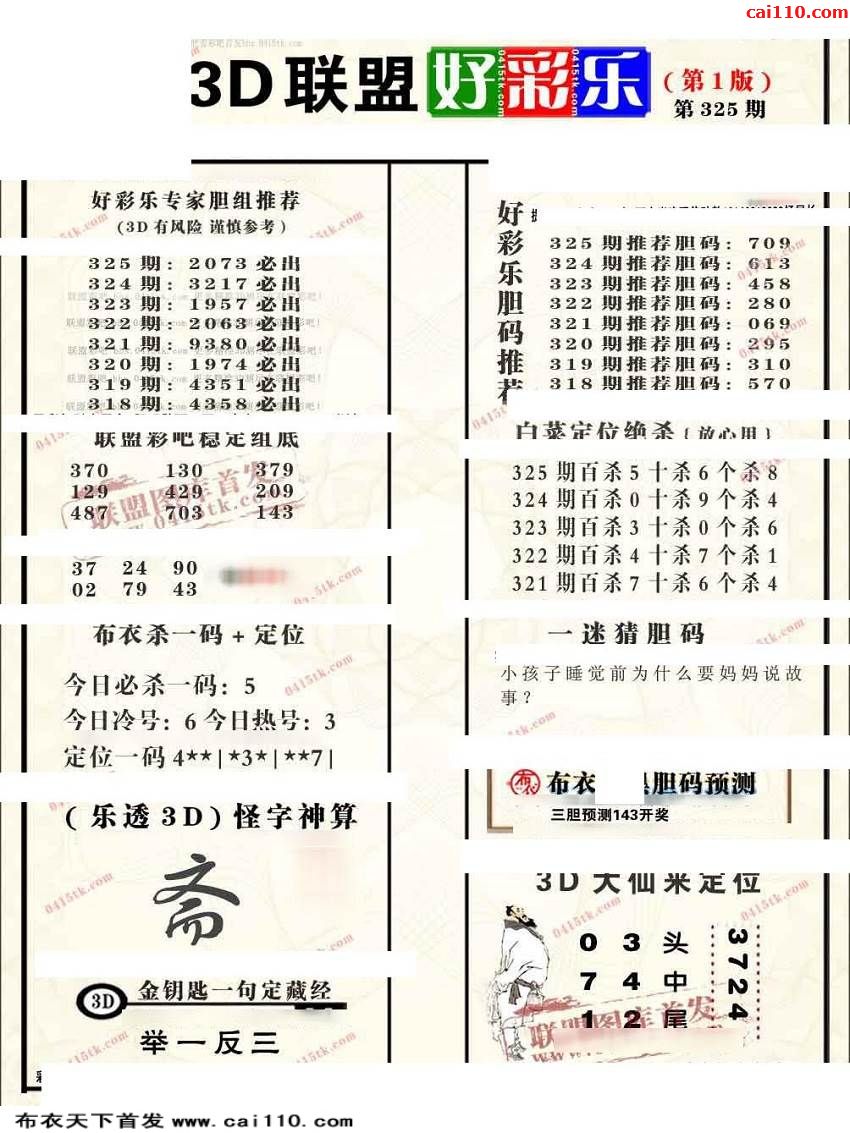 cai110.com
3D联盟 好彩乐 (第1版)
第325期
好彩乐专家胆组推荐
(3D有风险 谨慎参考)
325期: 2073必出
324期: 3217必出
323期: 1957必出
322期: 2063必出
321期: 9380必出
320期: 1974必出
319期: 4351必出
318期: 4358必出
联盟彩吧稳定组底
370 130 379
129 429 209
487 703 143
37 24 90
02 79 43
布衣杀一码+定位
今日必杀一码: 5
今日冷号: 6 今日热号: 3
定位一码 4**|*3*|**7|
(乐透3D)怪字神算
斋
3D 金钥匙一句定藏经
举一反三
好彩乐胆码推荐
325期推荐胆码: 709
324期推荐胆码: 613
323期推荐胆码: 458
322期推荐胆码: 280
321期推荐胆码: 069
320期推荐胆码: 295
319期推荐胆码: 310
318期推荐胆码: 570
白菜定位绝杀{放心用}
325期百杀5十杀6个杀8
324期百杀0十杀9个杀4
323期百杀3十杀0个杀6
322期百杀4十杀7个杀1
321期百杀7十杀6个杀4
一迷猜胆码
小孩子睡觉前为什么要妈妈说故
事?
布衣 胆码预测
三胆预测143开奖
3D大仙来定位
0 3 头
7 4 中
1 2 尾
3724
联盟图库首发
0415tk.com
布衣天下首发 www.cai110.com